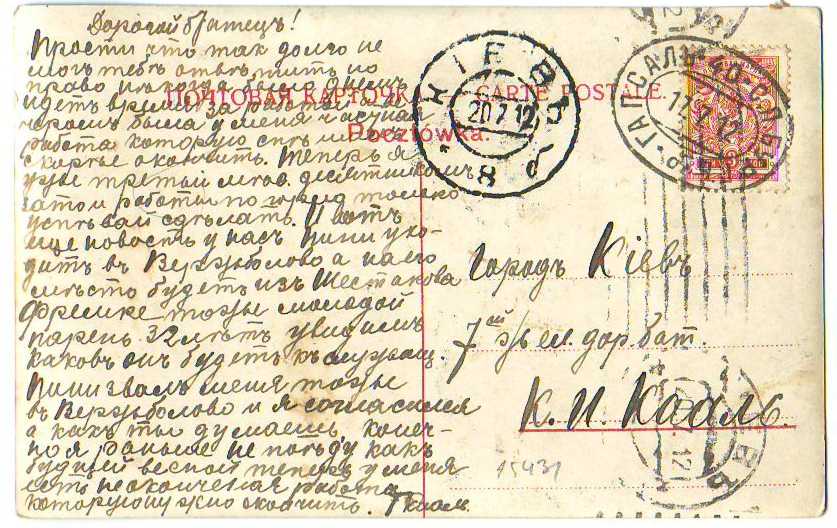 Дорогой братецъ!
Прости что так долго не
могъ тебѣ отвѣтить но
право никогда было днемъ
идетъ время за работой а ве-
черомъ была у меня частная
работа которую спѣшилъ
скорѣе окончить. Теперь я
уже третий мѣс. десятникомъ
зато и работы по горло только
успѣвай сдѣлать. И вотъ
еще новость у насъ Пипи ухо-
дитъ въ Вержболово а на его
мѣсто будетъ изъ Шестакова
Френке тоже молодой
парень 32 лѣтъ увидимъ
каковъ онъ будетъ къ служащ.
Пипи звалъ меня тоже
въ Вержболово и я согласился
а какъ ты думаешь конеч-
но я раньше не поѣду какъ
будущей весной теперь у меня
есть неоконченая работа
которую нужно окончить. Т Кааль.
ПОЧТОВАЯ КАРТОЧК
CARTE POSTALE.
Pocztówka.
КІЕВЪ
20.7.12
8
ГАПСАЛЬ
17.7.12
Городъ Кіевъ
7ой жел. дор. бат.
К. И Кааль.
15431